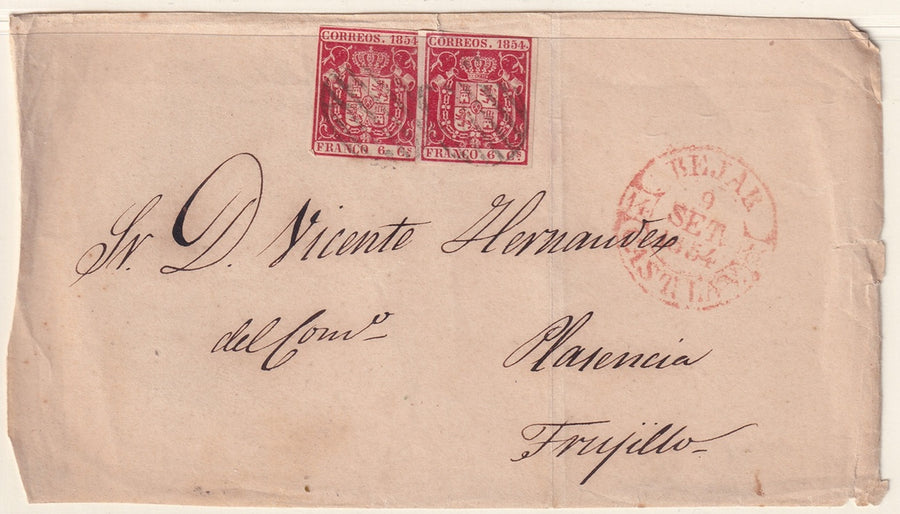 CORREOS. 1854.
FRANCO 6 Cs
CORREOS. 1854.
FRANCO 6 Cs
BEJAR
9
SET.
1854
CAST. LA V.
Sr. D. Vicente Hernandez
del Como
Plasencia
Trujillo